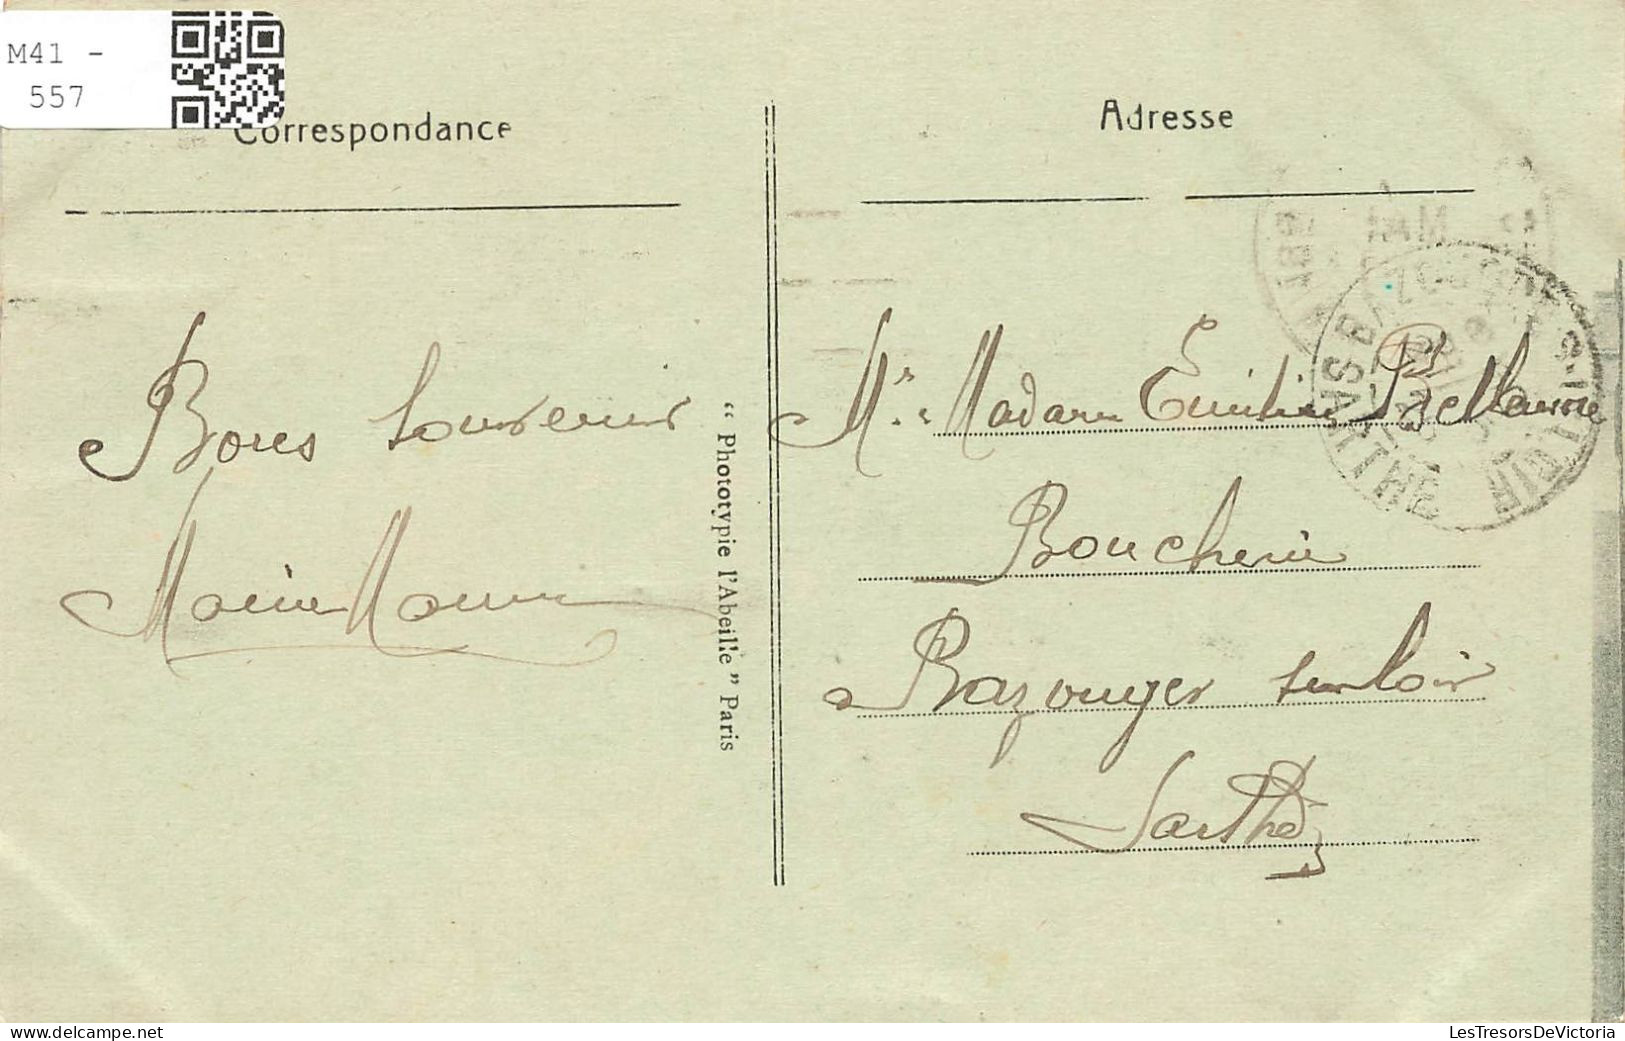 M41 -
557
Correspondance
Adresse
Bons Souvenir
"Phototypie l'Abeille" Paris
Mr. Madame Emilien
Boucherie
a Bazouges sur Loir
Sarthe
BAZOUGES SARTHE
LesTresorsDeVictoria
delcampe.net